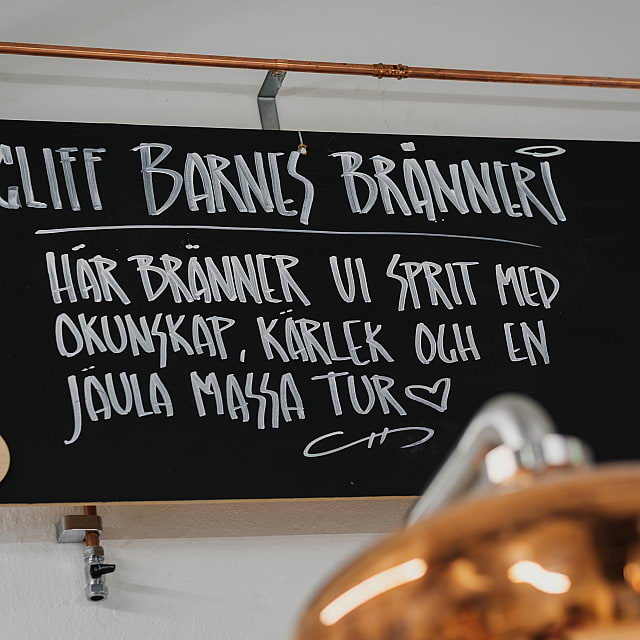 CLIFF BARNES BRÄNNERI
HÄR BRÄNNER VI SPRIT MED
OKUNSKAP, KÄRLEK OCH EN
JÄVLA MASSA TUR♡